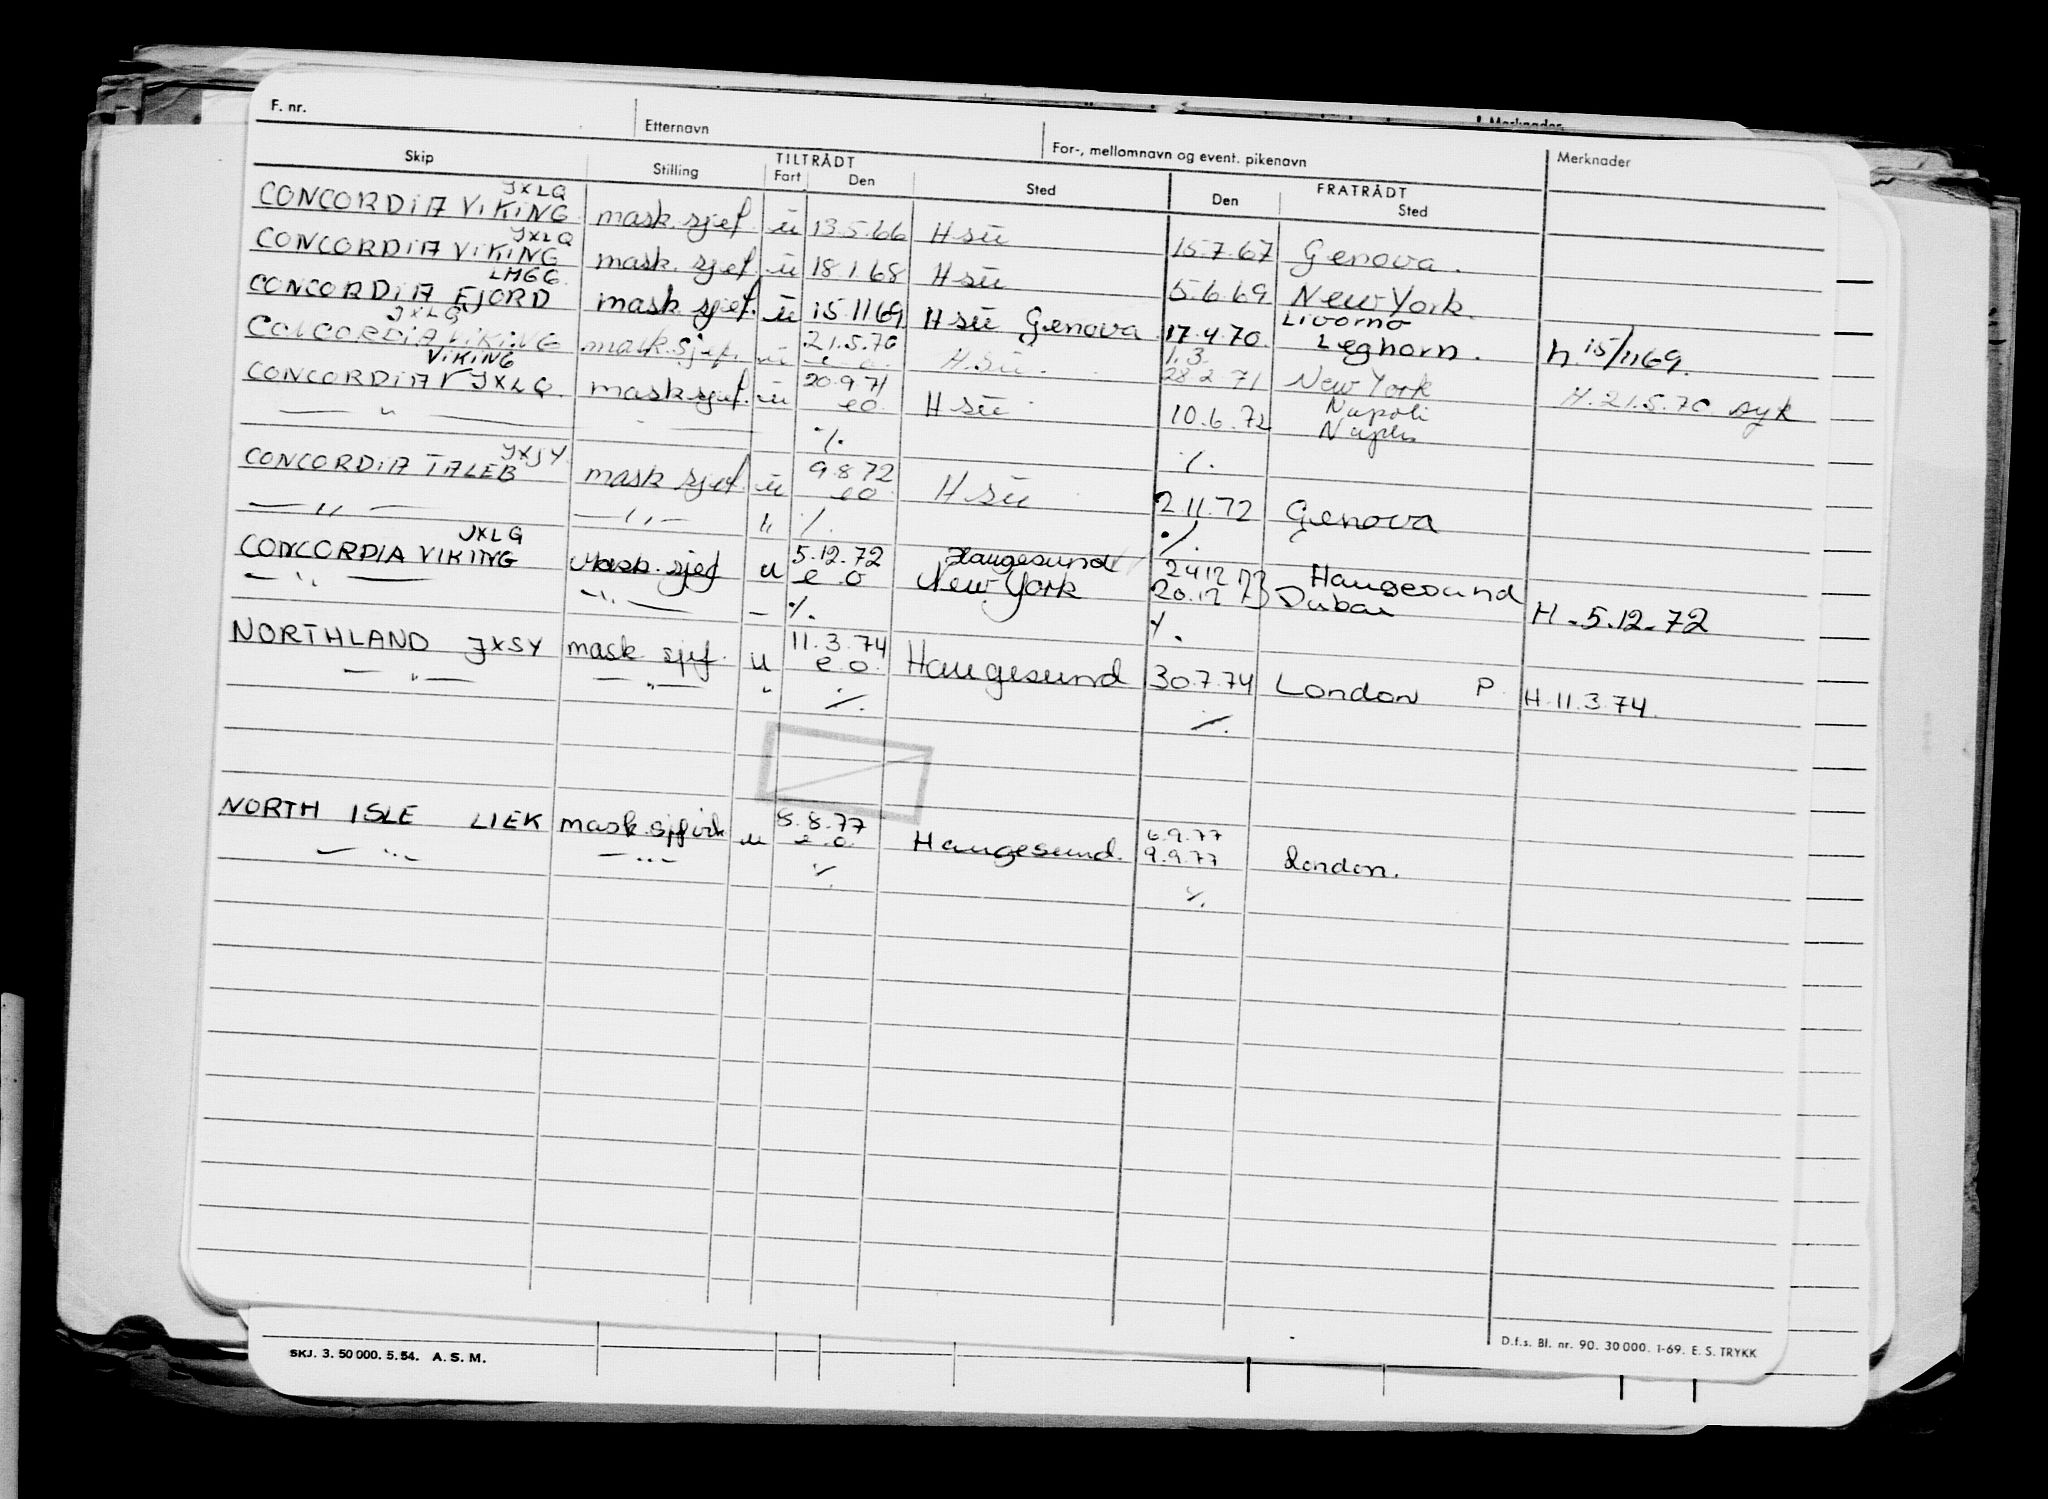 Merknader
F. nr. Etternavn For-, mellomnavn og event. pikenavn Merknader
Skip Stilling TILTRÅDT Fart Den Sted FRATRÅDT Den Sted
JXLQ
CONCORDIA VIKING mask. sjef ü 13.5.66 H sü 15.7.67 Genova.
JXLQ
CONCORDIA VIKING mask. sjef ü 18.1.68 H sü 5.6.69 New York.
LMGG
CONCORDIA FJORD mask sjef. ü 15.11 69 H sü Genova 17.4.70 Livorno Leghorn. h. 15/11 69.
JXLQ
CONCORDIA VIKING mask. sjef. ü 21.5.70 e o. H. sü. 1.3. 28.2.71 New York H. 21.5.70 syk
VIKING
CONCORDIA V JXLQ. mask sjef. ü 20.9.71 eo. H sü 10.6.72 Napoli Naples
— " — — ./. ./.
JXSY
CONCORDIA TALEB mask sjef. ü 9.8.72 eo. H sü 2.11.72 Genova
— ,, — — ,, — ,, ./. ./.
JXLQ
CONCORDIA VIKING Mask. sjef u 5.12.72 e o Haugesund New York 24.12.73 20.12.73 Haugesund Dubai H. 5.12.72
— ,, — — ,, — – ./. ./.
NORTHLAND JXSY mask sjef. u 11.3.74 e.o. Haugesund 30.7.74 London P. H. 11.3.74.
— " — — " — " ./. ./.
NORTH ISLE LIEK mask. u 5.8.77 e.o. Haugesund. 6.9.77 9.9.77 London.
— " — — " — ./. ./.
D.f.s. Bl. nr. 90. 30 000. 1-69. E. S. TRYKK
SKJ. 3. 50 000. 5. 54. A. S. M.